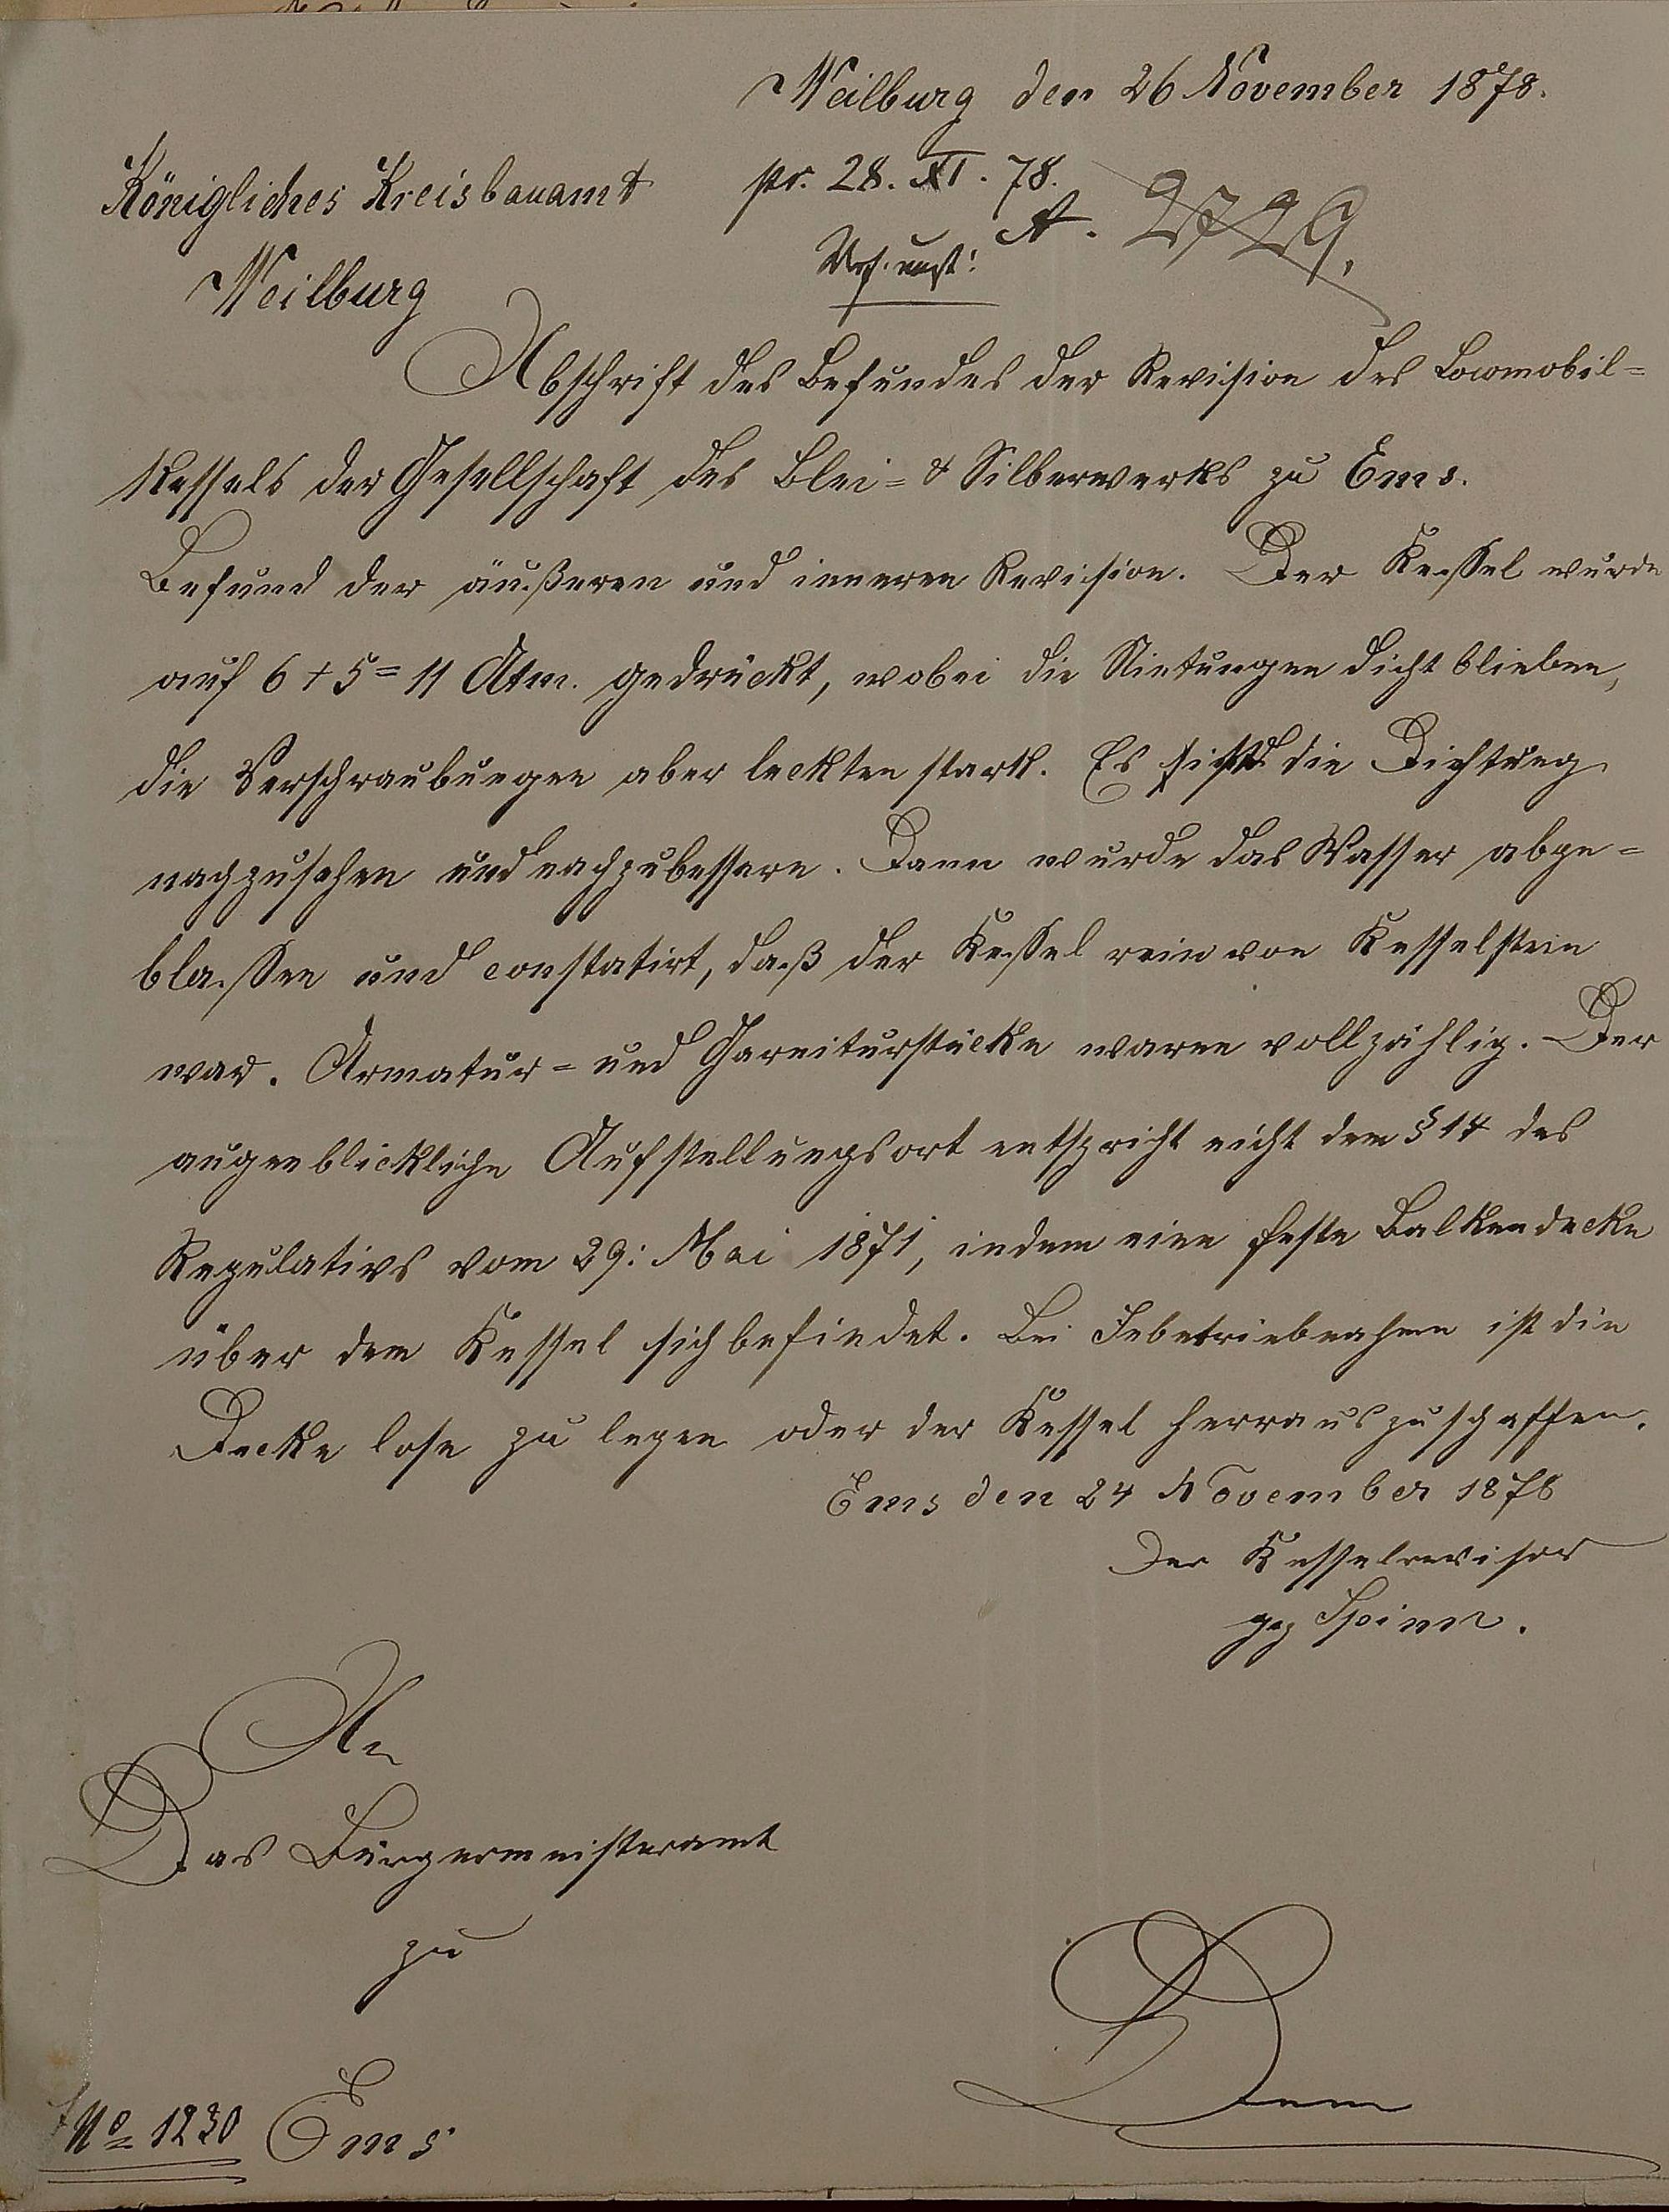 Weilburg den 26 November 1878.
Königliches Kreisbauamt
pr. 28. XI. 78.
A. 2729.
Weilburg
Abschrift des Befundes der Revision des Locomobil=
kessels der Gesellschaft des Blei= & Silberwerks zu Ems.
Befund der äußeren und inneren Revision. Der Kessel wurde
auf 6 + 5 = 11 Atm. gedrückt, wobei die Nietungen dicht blieben,
die Verschraubungen aber leckten stark. Es sind die Dichtung
nachzusehen und nachzubessern. Dann wurde das Wasser abge=
blassen und constatirt, daß der Kessel rein von Kesselstein
war. Armatur= und Garniturstücke waren vollzählig. Der
augenblickliche Aufstellungsort entspricht nicht dem § 14 des
Regulativs vom 29: Mai 1871, indem eine feste Balkendecke
über dem Kessel sich befindet. Bei Inbetriebnahme ist die
Decke lose zu legen oder der Kessel herrauszuschaffen.
Ems den 24 November 1878
Der Kesselrevisor
gez Spinn.
An
Das Bürgermeisteramt
zu
Ems
No 1230